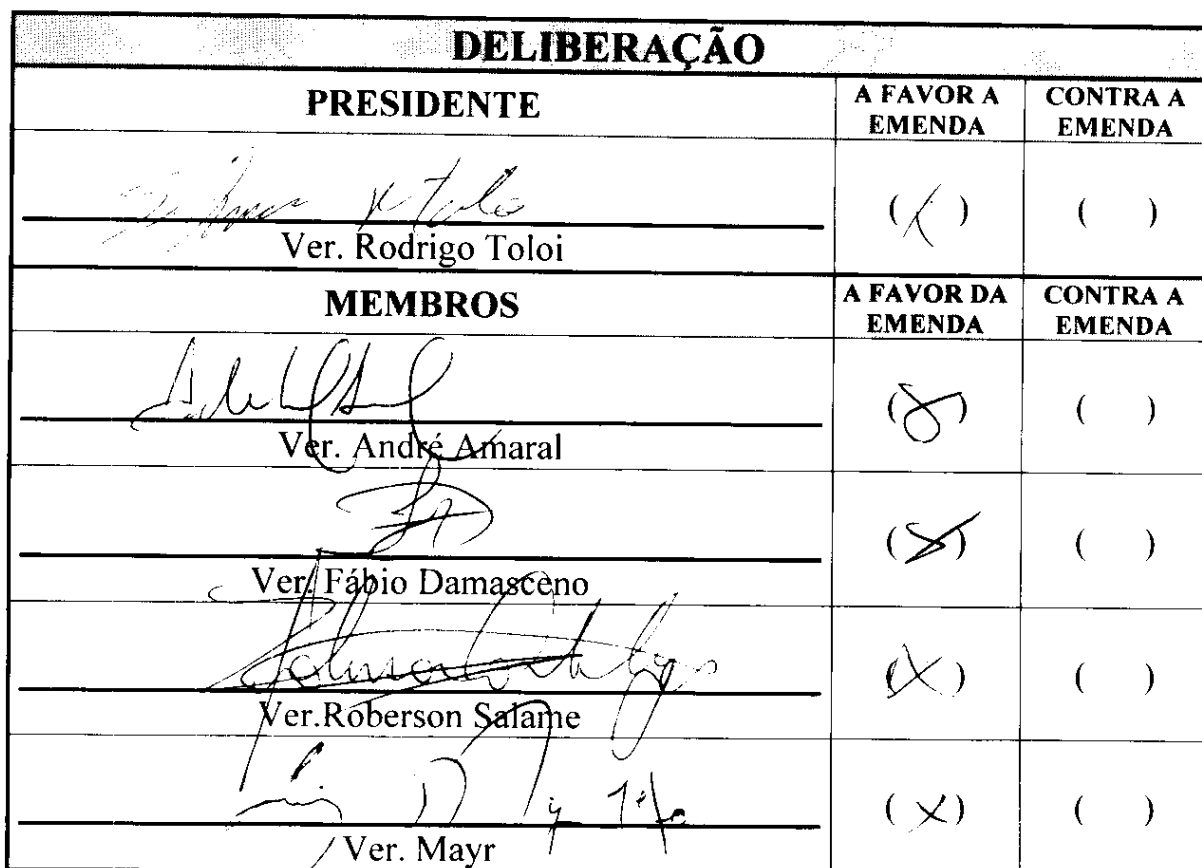 DELIBERAÇÃO
PRESIDENTE A FAVOR A EMENDA CONTRA A EMENDA
(X) ( )
Ver. Rodrigo Toloi
MEMBROS A FAVOR DA EMENDA CONTRA A EMENDA
(X) ( )
Ver. André Amaral
(X) ( )
Ver. Fábio Damasceno
(X) ( )
Ver.Roberson Salame
(X) ( )
Ver. Mayr